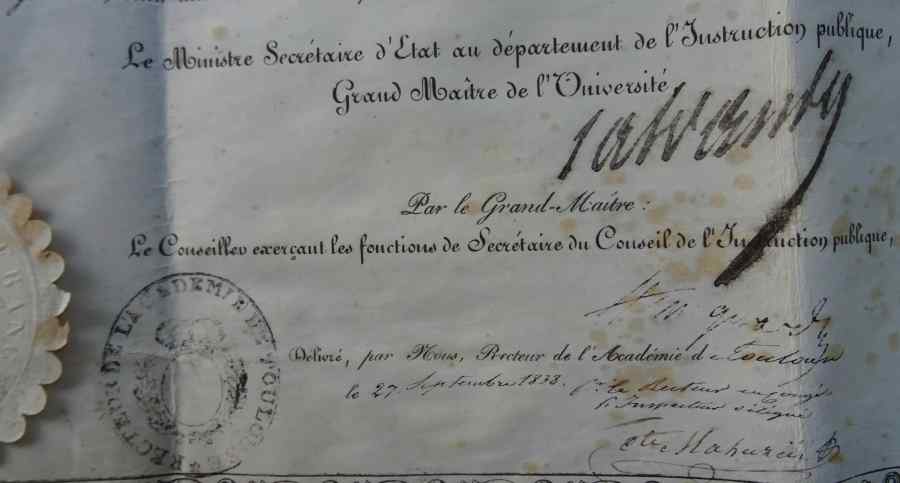 Le Ministre Secrétaire d'Etat au département de l'Instruction publique,
Grand Maître de l'Université
Salvandy
Par le Grand-Maître :
Le Conseiller exerçant les fonctions de Secrétaire du Conseil de l'Instruction publique,
RECTEUR DE LA CADEMIE DE TOULOUSE
Délivré, par Nous, Recteur de l'Académie d Toulouse
le 27 Septembre 1838. pr. le Recteur en congé
l'Inspecteur délégué